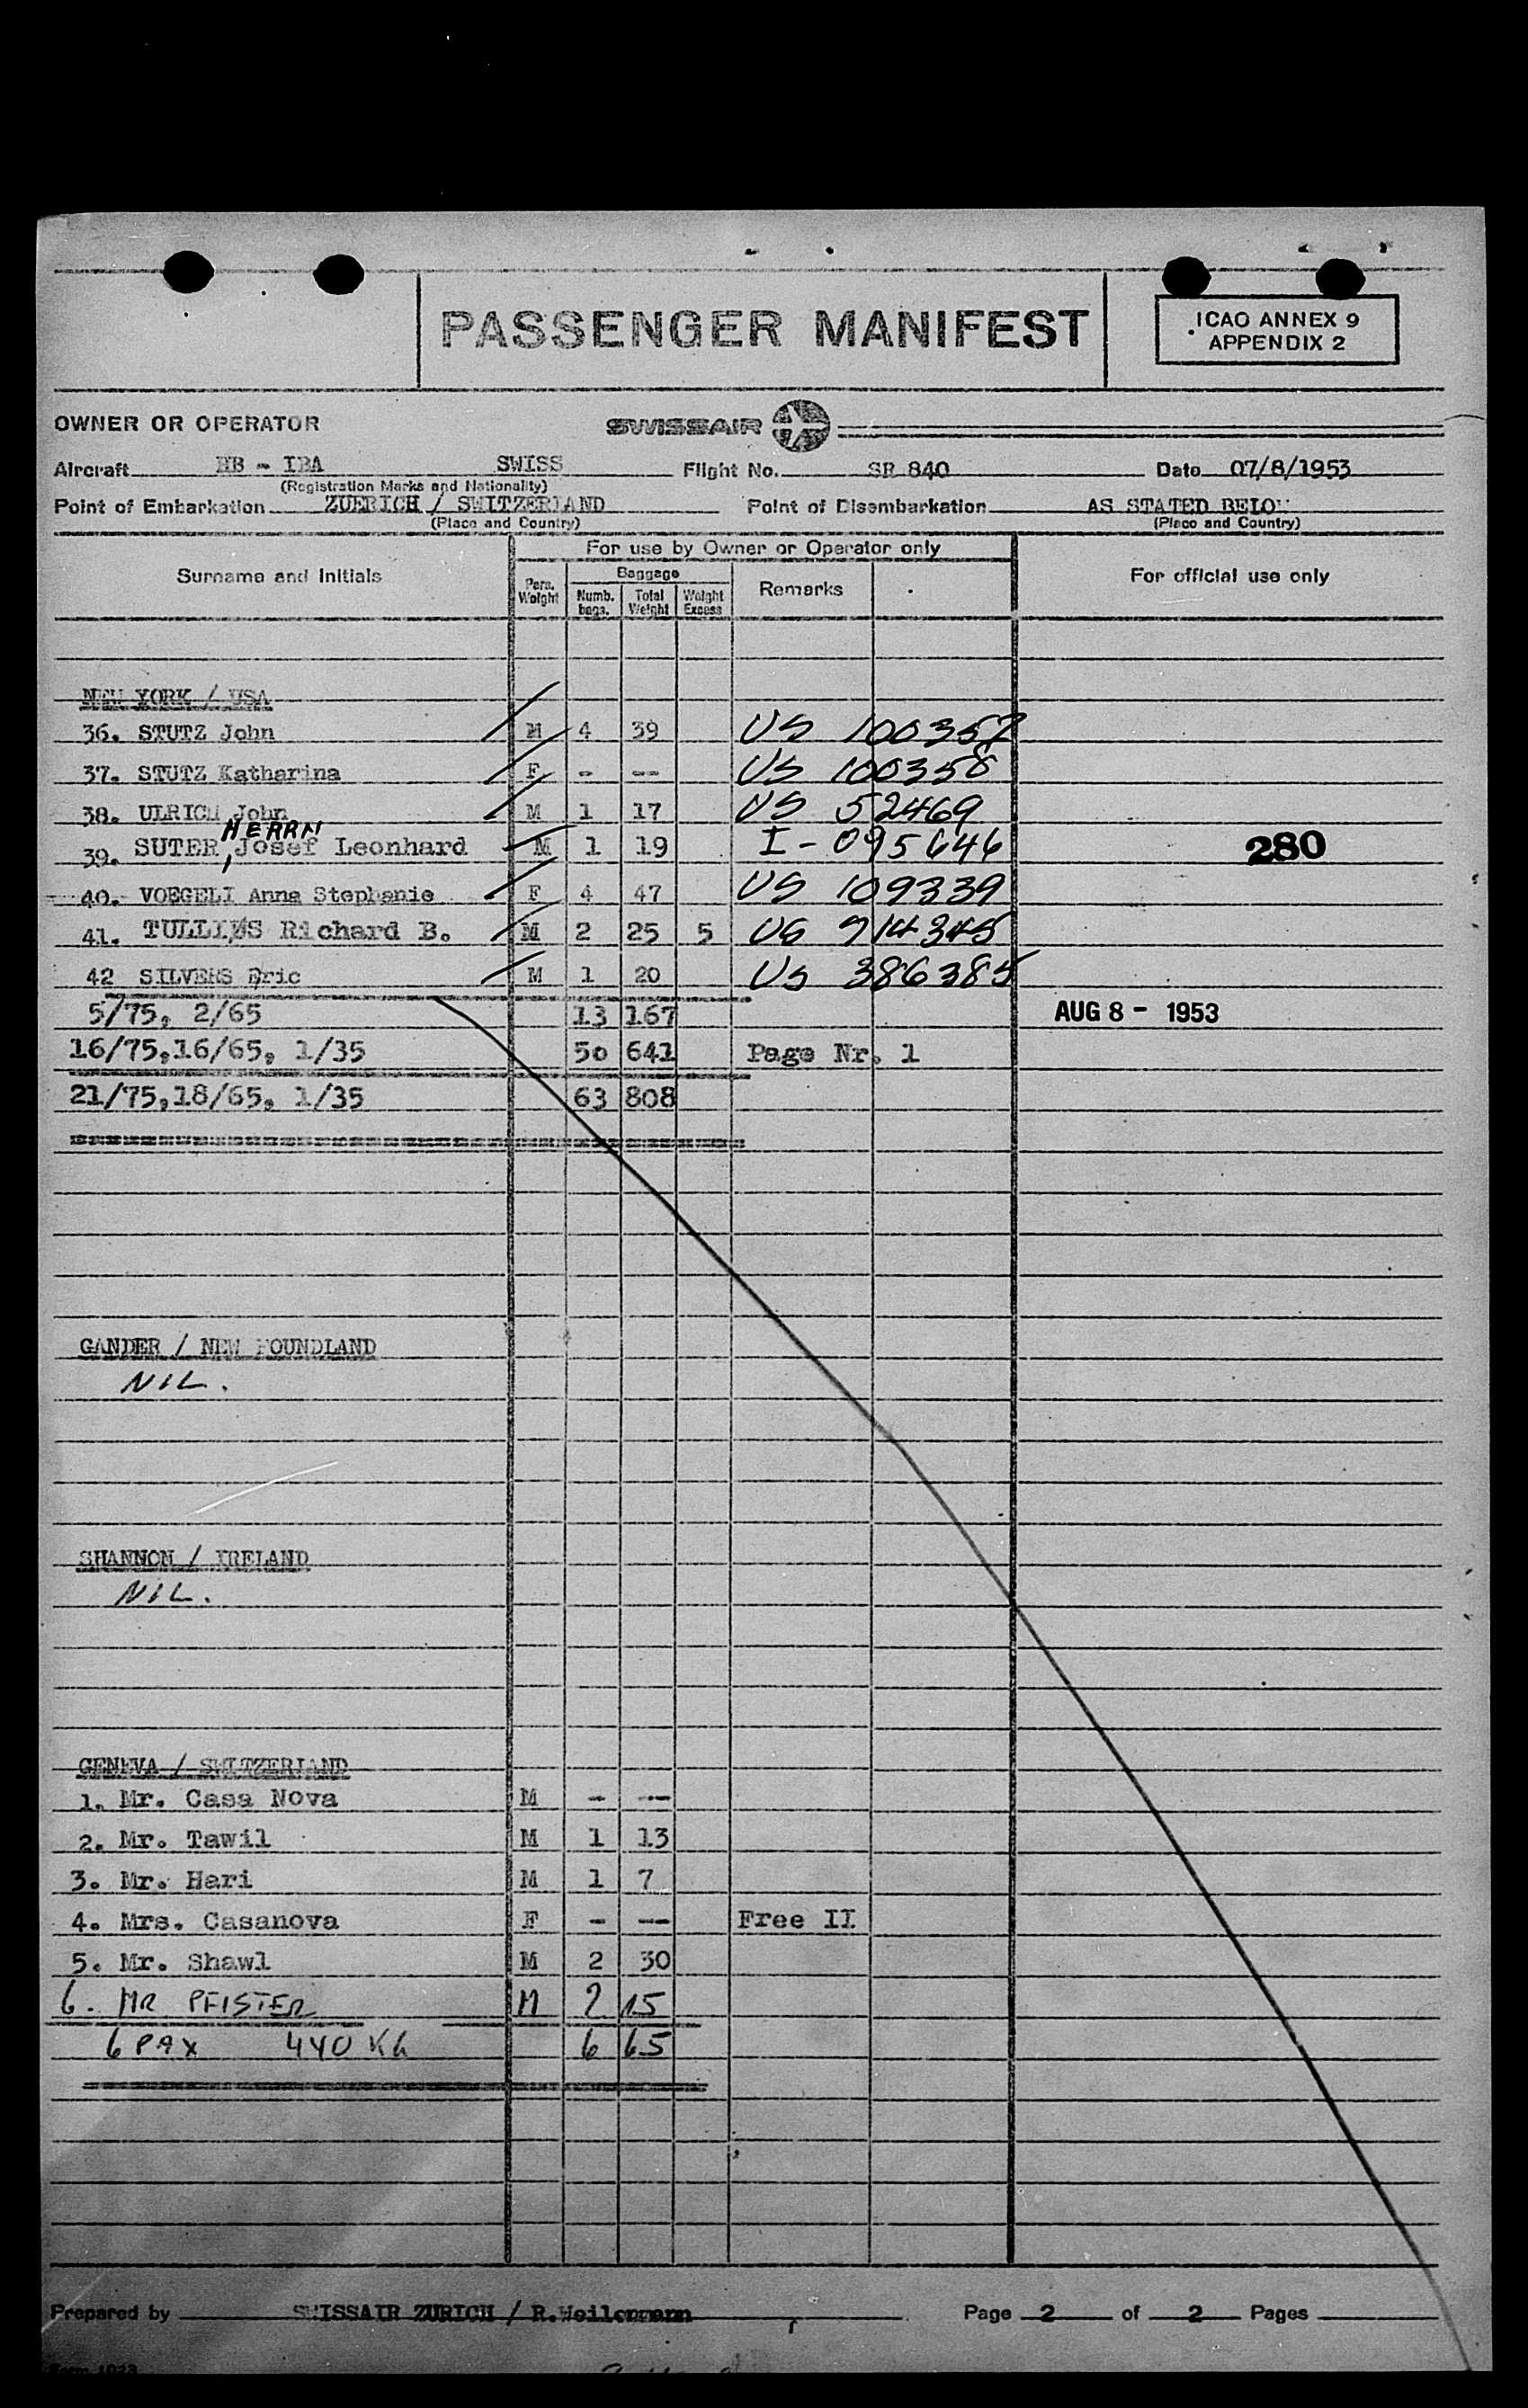 PASSENGER MANIFEST
ICAO ANNEX 9
APPENDIX 2
OWNER OR OPERATOR SWISSAIR
Aircraft HB - IBA SWISS Flight No. SR 840 Date 07/8/1953
(Registration Marks and Nationality)
Point of Embarkation ZUERICH / SWITZERLAND Point of Disembarkation AS STATED BELOW
(Place and Country) (Place and Country)
For use by Owner or Operator only
Surname and Initials Pers. Weight Baggage Remarks For official use only
Numb. bags. Total Weight Weight Excess
NEW YORK / USA
36. STUTZ John M 4 39 US 100357
37. STUTZ Katharina F - -- US 100358
38. ULRICH John M 1 17 US 52469
HERRN
39. SUTER, Josef Leonhard M 1 19 I-095646 280
40. VOEGELI Anna Stephanie F 4 47 US 109339
41. Richard B. M 2 25 5 US 914345
42 SILVERS Eric M 1 20 US 386385
5/75, 2/65 13 167 AUG 8 - 1953
16/75,16/65, 1/35 50 641 Page Nr. 1
21/75,18/65, 1/35 63 808
GANDER / NEW FOUNDLAND
NIL.
SHANNON / IRELAND
NIL.
GENEVA / SWITZERLAND
1. Mr. Casa Nova M - --
2. Mr. Tawil M 1 13
3. Mr. Hari M 1 7
4. Mrs. Casanova F - -- Free II
5. Mr. Shawl M 2 30
6. MR PFISTER M 2 15
6 PAX 440 KG 6 65
Prepared by SWISSAIR ZURICH / R.Weilenmann Page 2 of 2 Pages